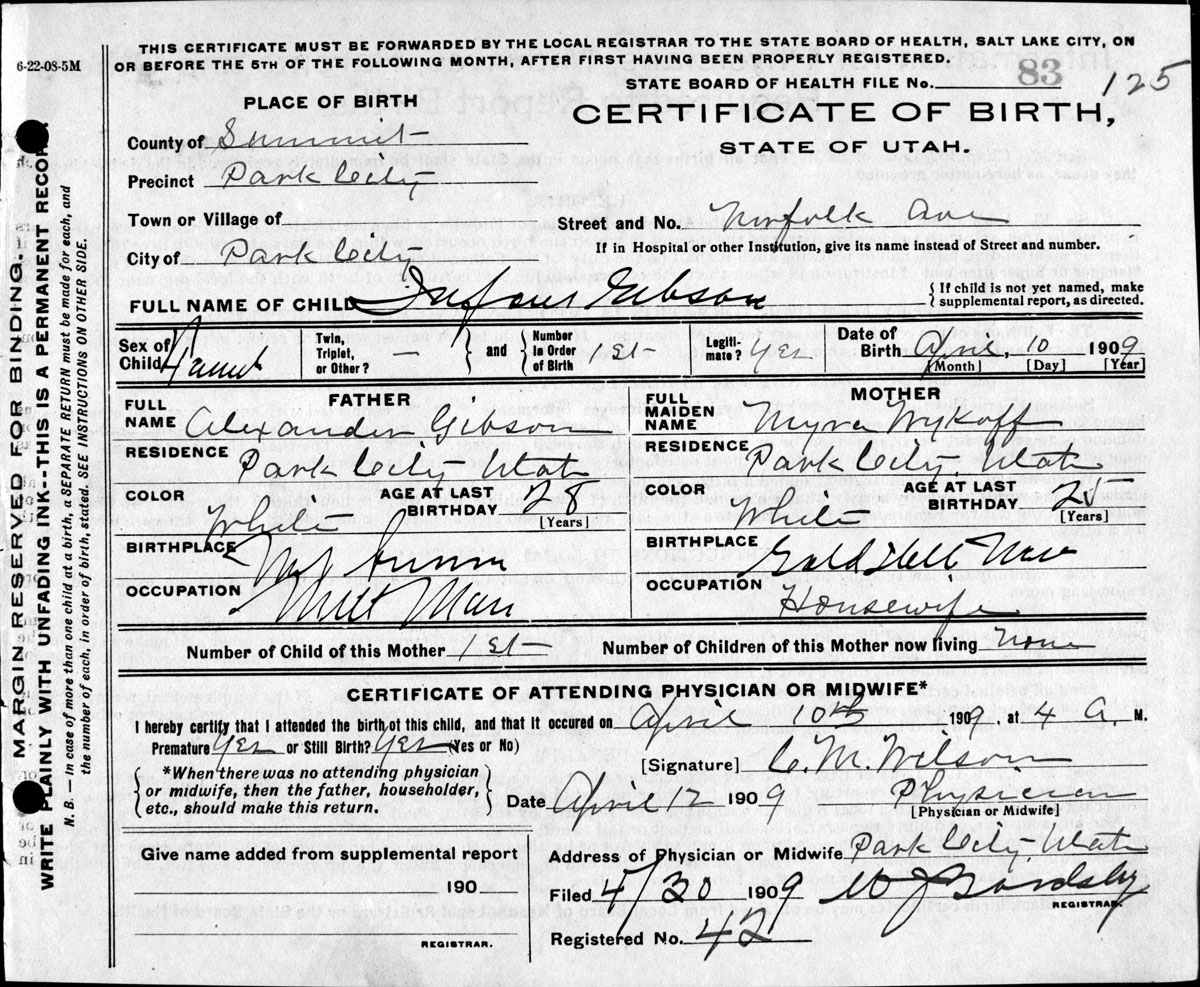 THIS CERTIFICATE MUST BE FORWARDED BY THE LOCAL REGISTRAR TO THE STATE BOARD OF HEALTH, SALT LAKE CITY, ON
6-22-08-5M
OR BEFORE THE 5TH OF THE FOLLOWING MONTH, AFTER FIRST HAVING BEEN PROPERLY REGISTERED.
STATE BOARD OF HEALTH FILE No. 83 125
PLACE OF BIRTH
CERTIFICATE OF BIRTH,
STATE OF UTAH.
County of Summit
Precinct Park City
Town or Village of
Street and No. Norfolk Ave
If in Hospital or other Institution, give its name instead of Street and number.
City of Park City
FULL NAME OF CHILD Infant Gibson
{ If child is not yet named, make supplemental report, as directed.
Sex of Child
Twin, Triplet, or Other? —
} and {
Number in Order of Birth
Legitimate? Yes
Date of Birth April, 10 1909
[Month] [Day] [Year]
FATHER
FULL NAME Alexander Gibson
RESIDENCE Park City Utah
COLOR White
AGE AT LAST BIRTHDAY 28
[Years]
BIRTHPLACE
OCCUPATION Mill Man
MOTHER
FULL MAIDEN NAME Myra Wykoff
RESIDENCE Park City Utah
COLOR White
AGE AT LAST BIRTHDAY 25
[Years]
BIRTHPLACE Gold Hill Nev
OCCUPATION Housewife
Number of Child of this Mother 1st
Number of Children of this Mother now living None
CERTIFICATE OF ATTENDING PHYSICIAN OR MIDWIFE*
I hereby certify that I attended the birth of this child, and that it occured on April 10th 1909, at 4 A. M.
Premature Yes or Still Birth? Yes (Yes or No)
[Signature] C. M. Wilson
{ *When there was no attending physician or midwife, then the father, householder, etc., should make this return. }
Date April 12 1909
Physician
[Physician or Midwife]
Give name added from supplemental report
190
REGISTRAR.
Address of Physician or Midwife Park City Utah
Filed 4/30 1909
REGISTRAR.
Registered No. 42
MARGIN RESERVED FOR BINDING.
WRITE PLAINLY WITH UNFADING INK--THIS IS A PERMANENT RECORD.
N. B. — in case of more than one child at a birth, a SEPARATE RETURN must be made for each, and
the number of each, in order of birth, stated. SEE INSTRUCTIONS ON OTHER SIDE.